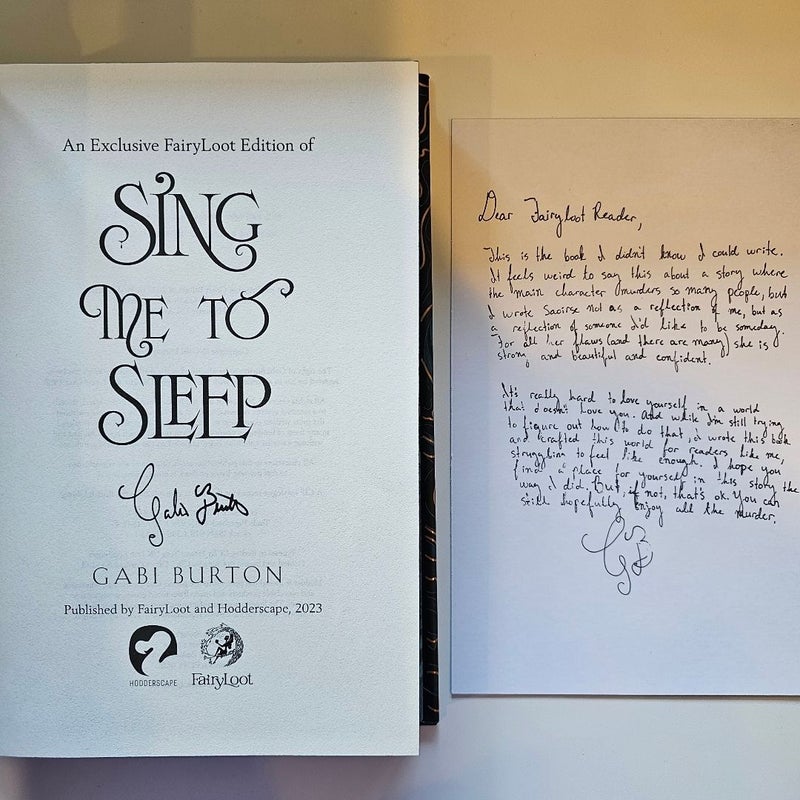 An Exclusive FairyLoot Edition of
SING
ME TO
SLEEP
Gabi Burton
GABI BURTON
Published by FairyLoot and Hodderscape, 2023
HODDERSCAPE
FairyLoot
Dear Fairyloot Reader,
This is the book I didn't know I could write.
It feels weird to say this about a story where
the main character murders so many people, but
I wrote Saoirse not as a reflection of me, but as
a reflection of someone I'd like to be someday.
For all her flaws (and there are many) she is
strong and beautiful and confident.
It's really hard to love yourself in a world
that doesn't love you. And while I'm still trying
to figure out how to do that, I wrote this book
and crafted this world for readers like me,
struggling to feel like enough. I hope you
find a place for yourself in this story the
way I did. But, if not, that's ok. You can
still hopefully enjoy all the murder.
GB